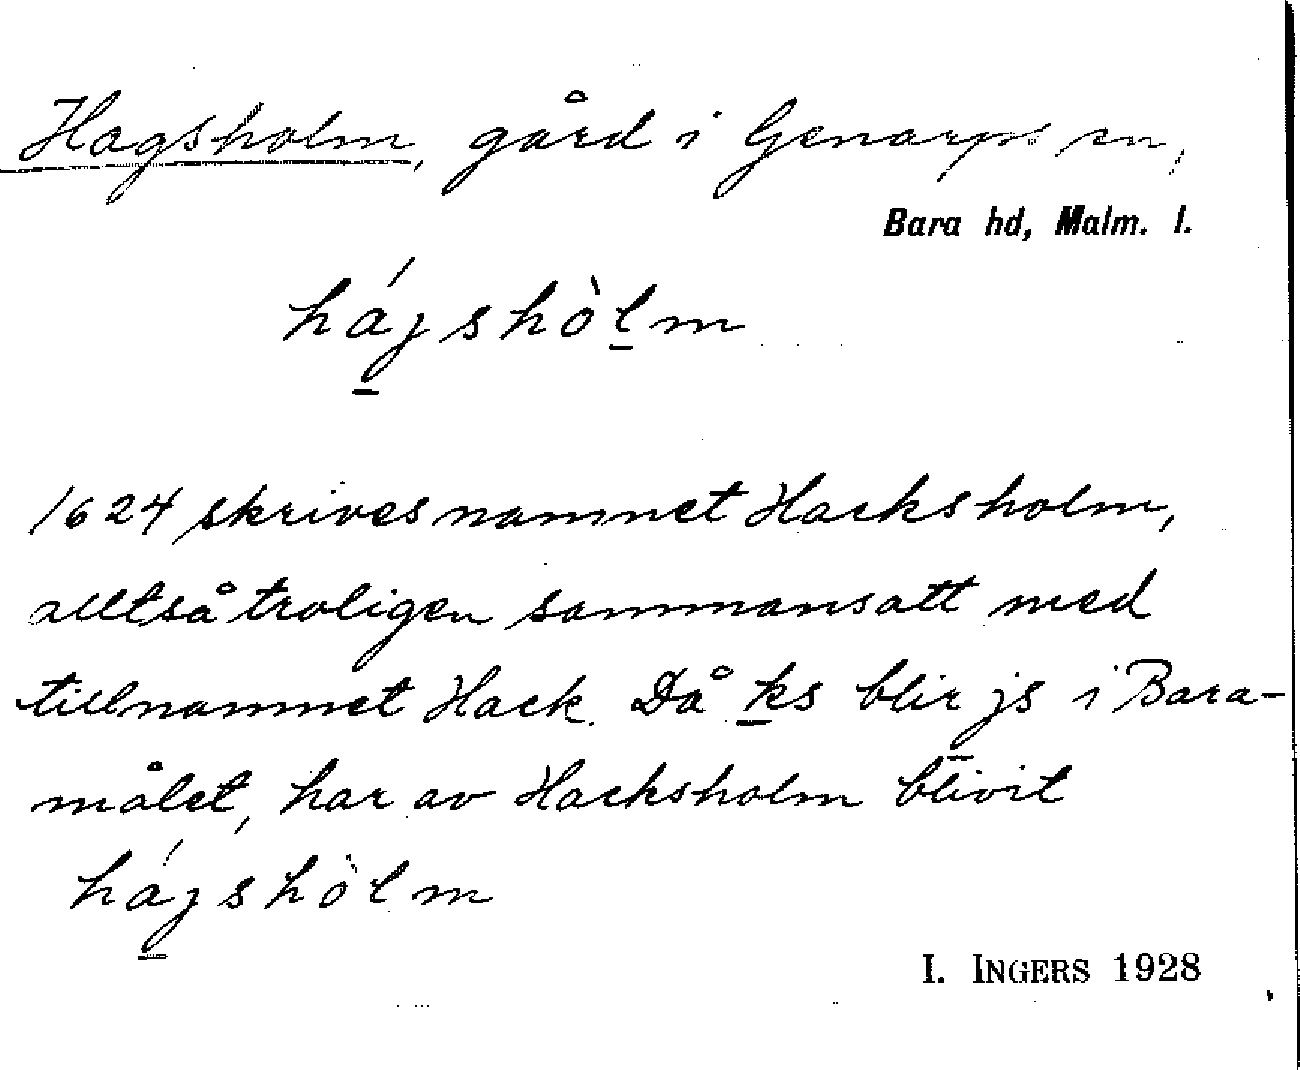 Hagsholm, gård i Genarps sn,
Bara hd, Malm. l.
hájshòlm
1624 skrives namnet Hacksholm,
alltså troligen sammansatt med
tillnamnet Hack. Då ks blir js i Bara-
målet, har av Hacksholm blivit
hájshòlm
I. INGERS 1928